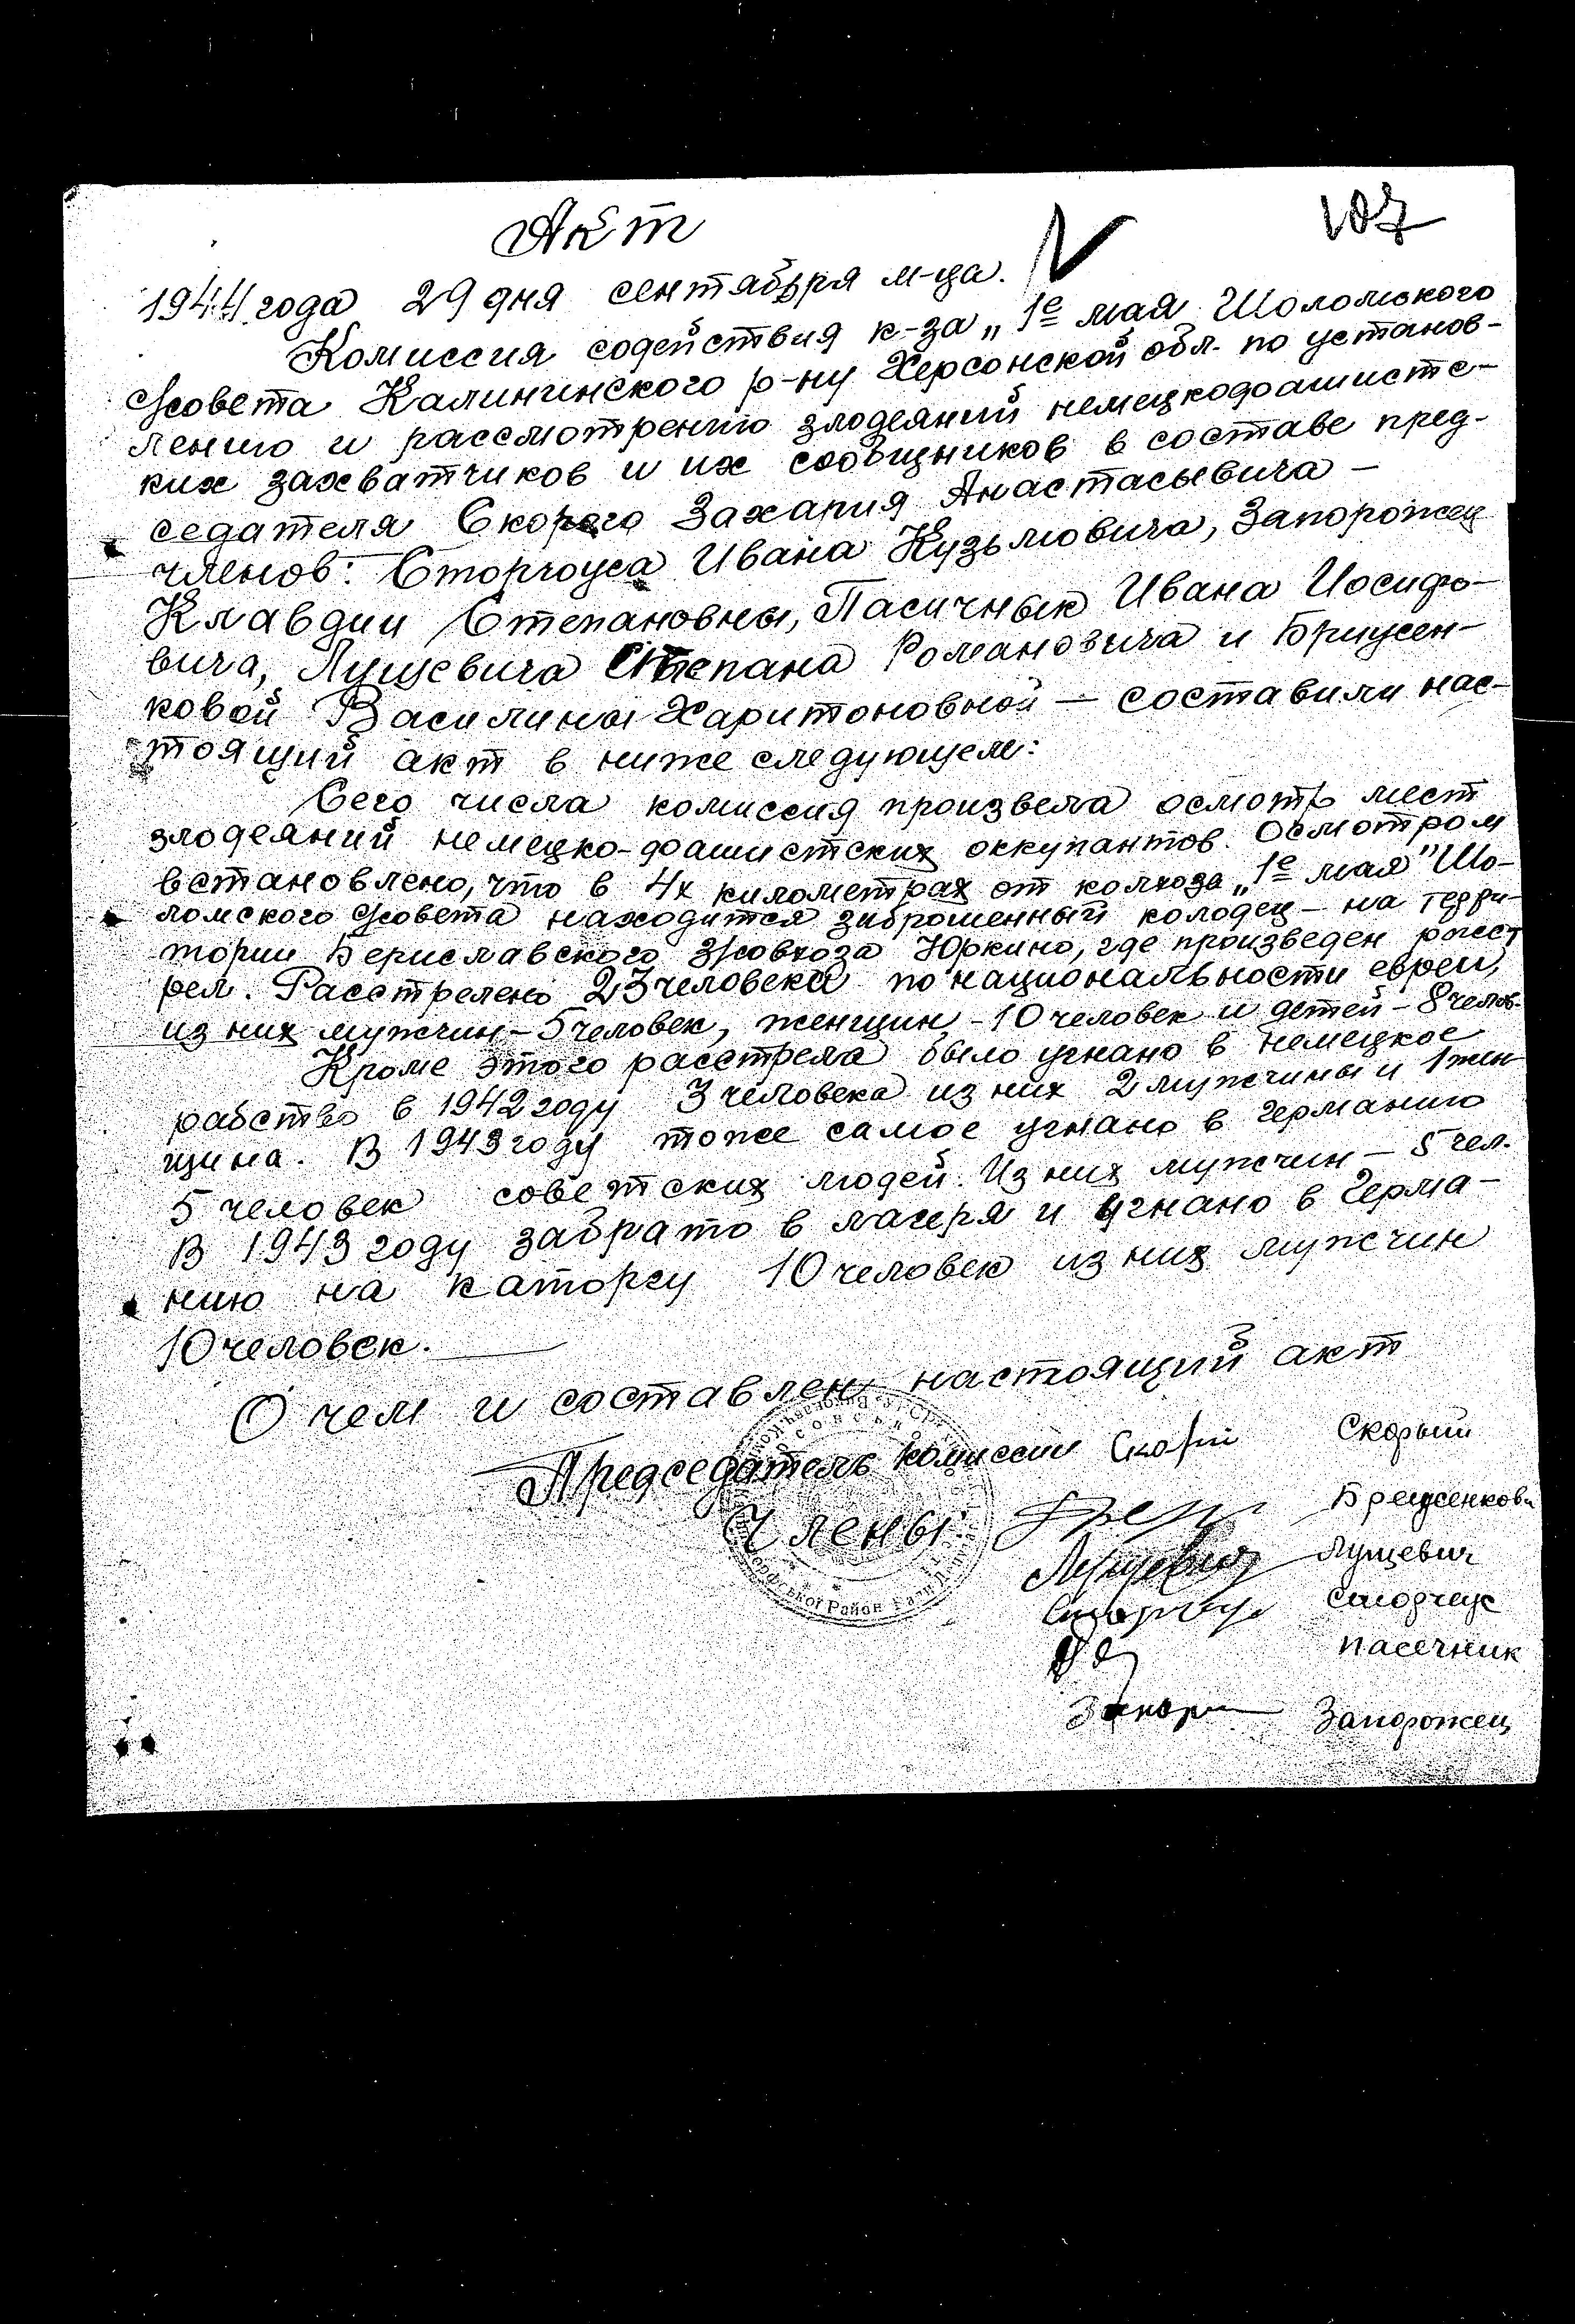 107
Акт
1944 года 29 дня сентября м-ца.
Комиссия содействия к-за „1е мая Шоломского
с/совета Калининского р-ну Херсонской обл. по установ-
лению и рассмотрению злодеяний немецкофашистс-
ких захватчиков и их сообщников в составе пред-
седателя Скорого Захария Анастасьевича –
членов: Сторчоуса Ивана Кузьмовича, Запорожец
Клавдии Степановны, Пасичнык Ивана Иосифо-
вича, Лущевича Степана Романовича и Брицен-
ковой Василины Харитоновной – составили нас-
тоящий акт в ниже следующем:
Сего числа комиссия произвела осмотр мест
злодеяний немецко-фашистских оккупантов. Осмотром
встановлено, что в 4х километрах от колхоза „1е мая" Шо-
ломского с/совета находится заброшенный колодец – на терри-
тории Бериславского з/совхоза Юркино, где произведен расст
рел. Расстрелено 23 человека по национальности евреи,
из них мужчин – 5 человек, женщин – 10 человек и детей – 8 челов.
Кроме этого расстрела было угнано в немецкое
рабство в 1942 году 3 человека из них 2 мужчины и 1 жен
щина. В 1943 году тоже самое угнано в Германию
5 человек советских людей. Из них мужчин – 5 чел.
В 1943 году забрато в лагеря и угнано в Герма-
нию на каторгу 10 человек из них мужчин
10 человек.
О чем и составлен настоящий акт
Председатель комиссии Скорий Скорый
Члены: Брещенкова
Лущевич Лущевич
Сторчоус Сторчеус
Пасечник
Запор Запорожец